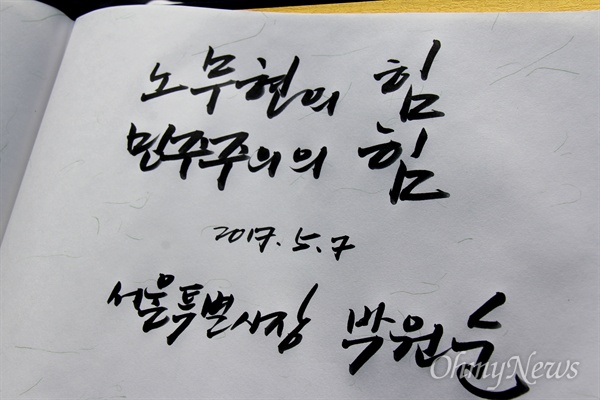 노무현의 힘
민주주의의 힘
2017. 5. 7
서울특별시장 박원순
OhmyNews